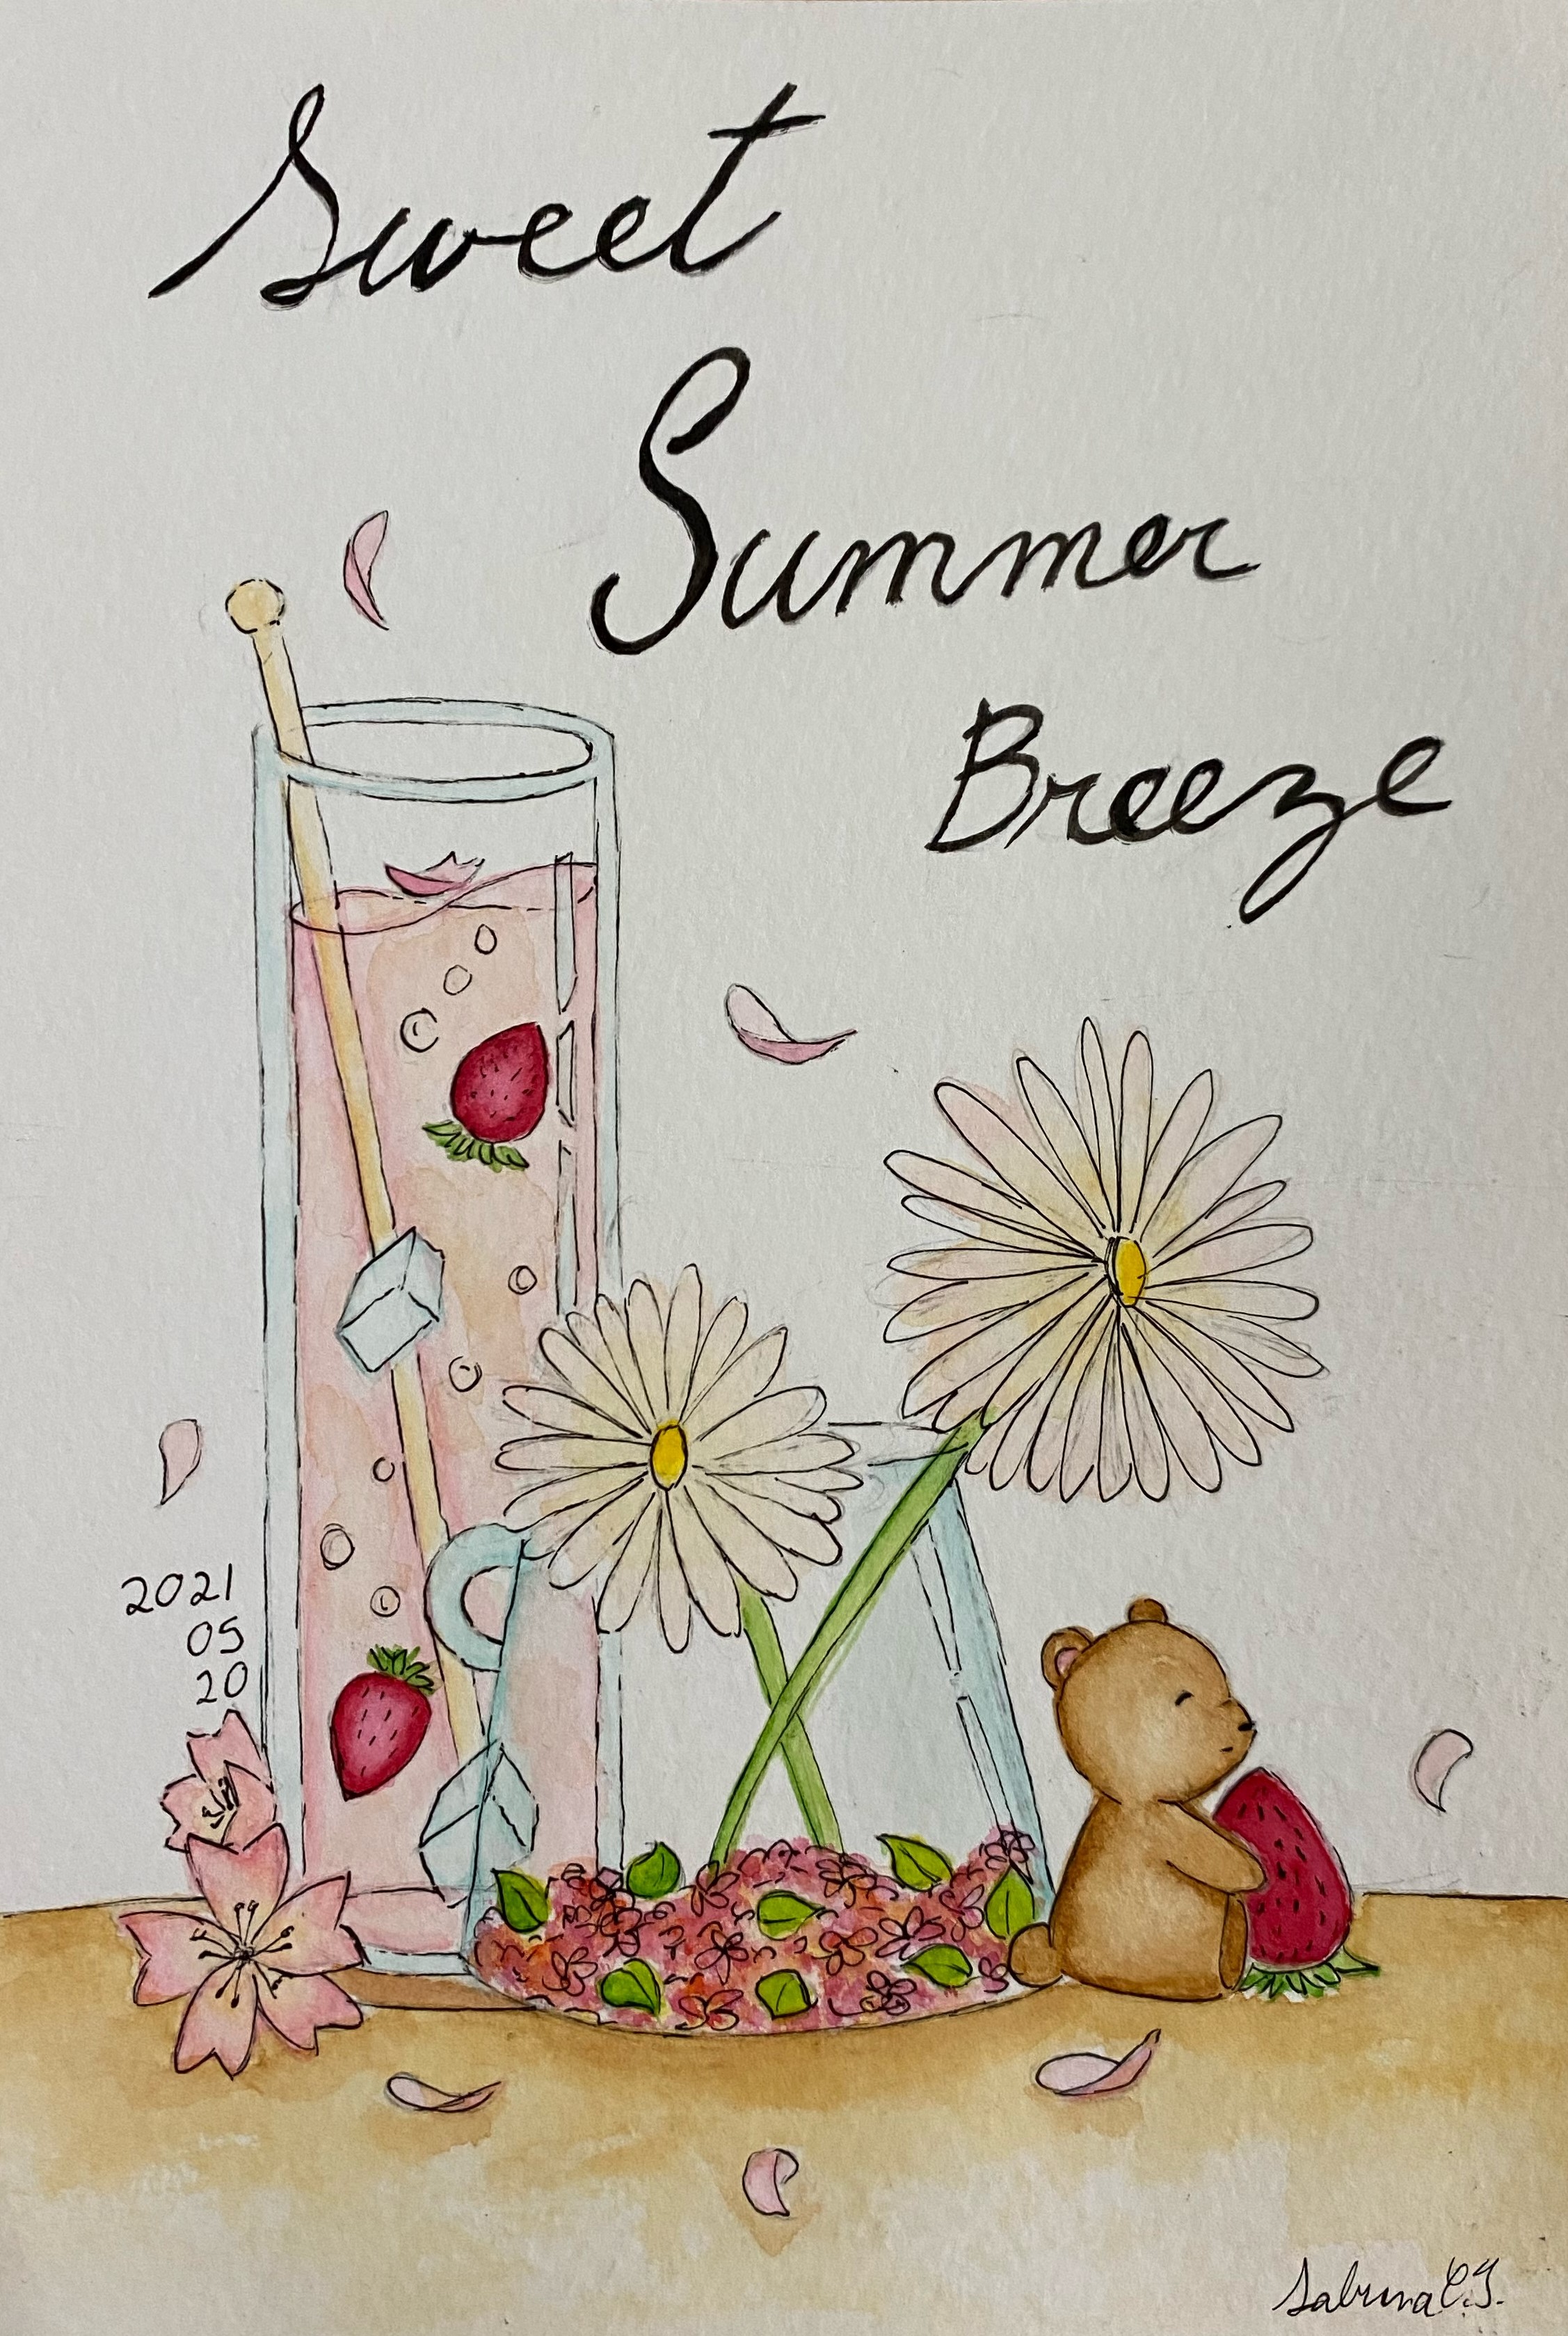 Sweet
Summer
Breeze
2021
05
20
Sabrina C.G.